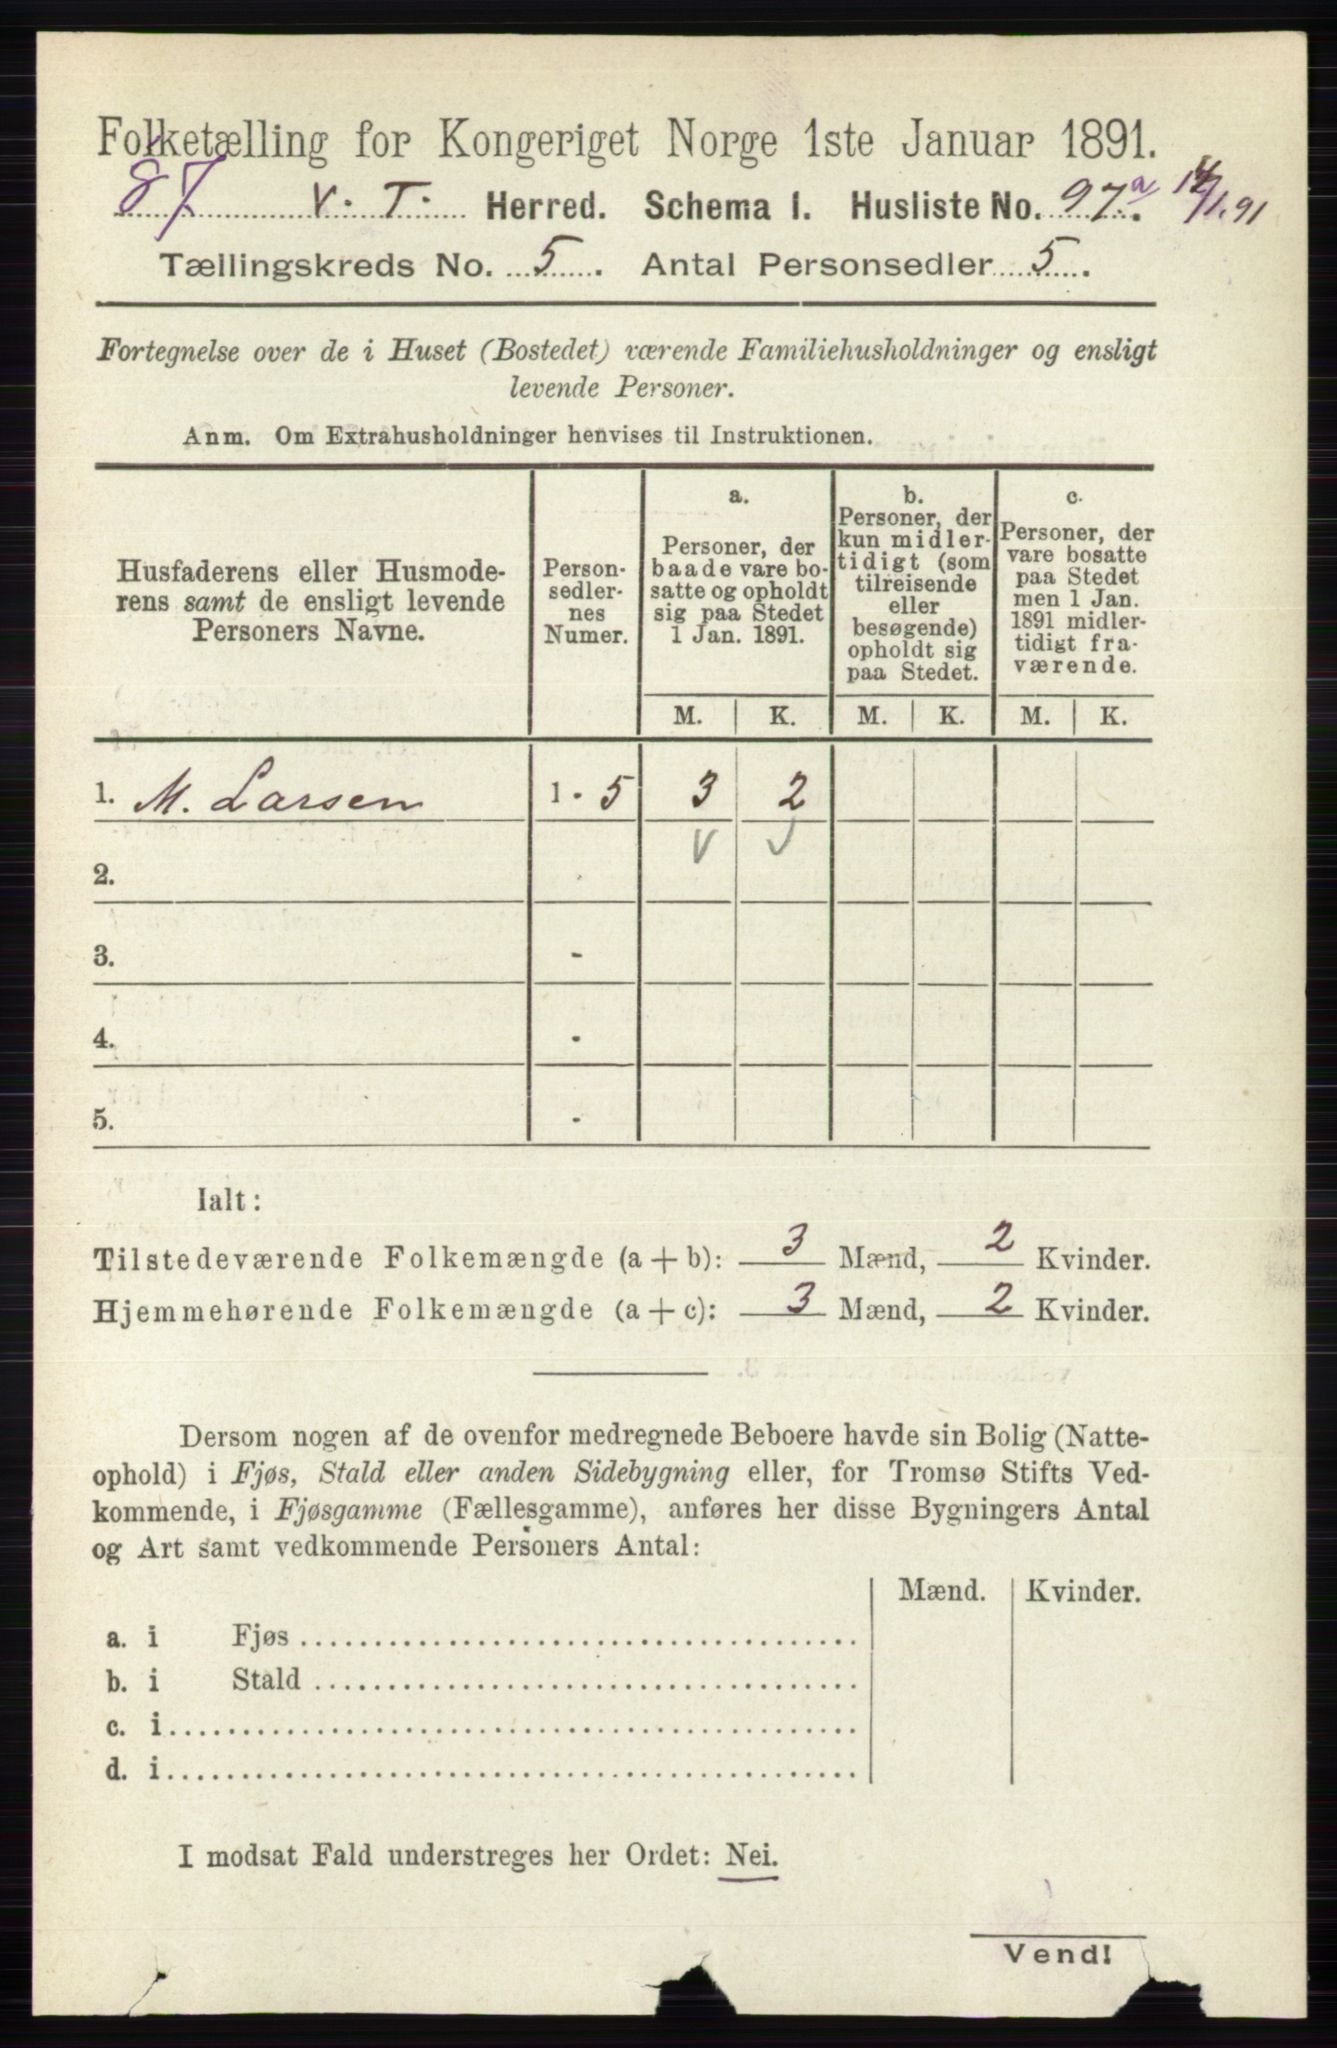 Folketælling for Kongeriget Norge 1ste Januar 1891.
87 V. T. Herred. Schema 1. Husliste No. 97a.
Tællingskreds No. 5. Antal Personsedler 5.
Fortegnelse over de i Huset (Bostedet) værende Familiehusholdninger og ensligt
levende Personer.
Anm. Om Extrahusholdninger henvises til Instruktionen.
Husfaderens eller Husmode-
rens samt de ensligt levende
Personers Navne.
Person-
sedler-
nes
Numer.
a.
Personer, der
baade vare bo-
satte og opholdt
sig paa Stedet
1 Jan. 1891.
b.
Personer, der
kun midler-
tidigt (som
tilreisende
eller
besøgende)
opholdt sig
paa Stedet.
c.
Personer, der
vare bosatte
paa Stedet
men 1 Jan.
1891 midler-
tidigt fra-
værende.
M. K. M. K. M. K.
1. M. Larsen 1 - 5 3 2
2.
3. -
4. -
5. -
Ialt:
Tilstedeværende Folkemængde (a + b): 3 Mænd, 2 Kvinder.
Hjemmehørende Folkemængde (a + c): 3 Mænd, 2 Kvinder.
Dersom nogen af de ovenfor medregnede Beboere havde sin Bolig (Natte-
ophold) i Fjøs, Stald eller anden Sidebygning eller, for Tromsø Stifts Ved-
kommende, i Fjøsgamme (Fællesgamme), anføres her disse Bygningers Antal
og Art samt vedkommende Personers Antal:
Mænd. Kvinder.
a. i Fjøs
b. i Stald
c. i
d. i
I modsat Fald understreges her Ordet: Nei.
Vend!